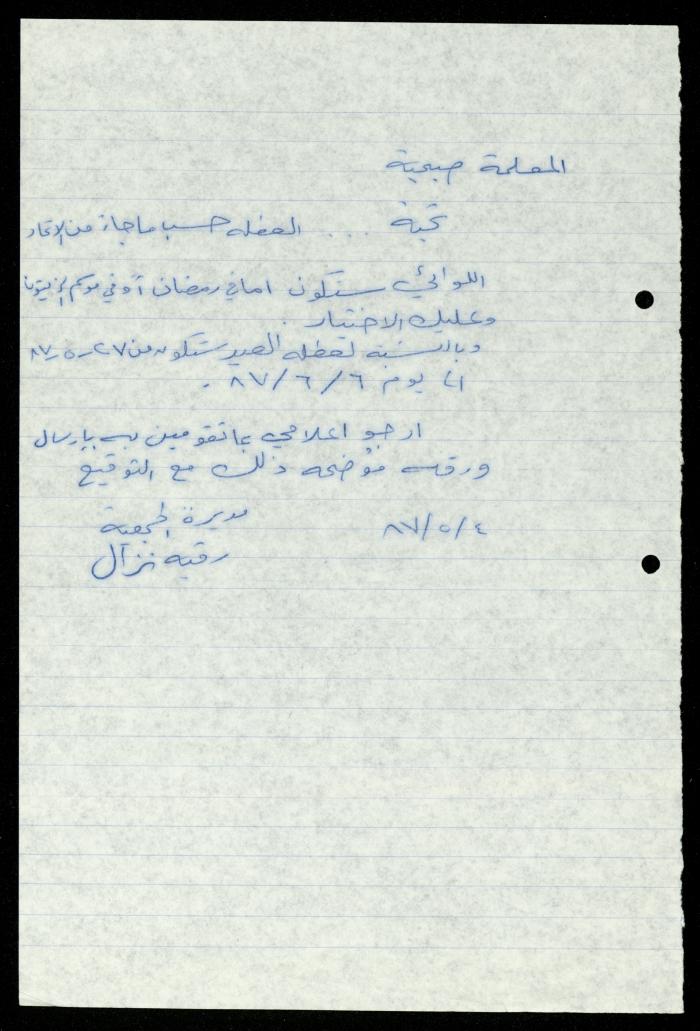 المعلمة صبحية
تحية ... العطله حسب ما جاء من الاتحاد
اللوائي ستكون اما في رمضان أو في موسم الزيتون
وعليك الاختيار .
وبالنسبة لعطله العيد ستكون من ٢٧-٥-٨٧
الى يوم ٦/٦/٨٧ .
ارجو اعلامي بما تقومين به بإرسال
ورقه موضحه ذلك مع التوقيع
٨٧/٥/٤
مديرة الجمعية
رقيه نزال